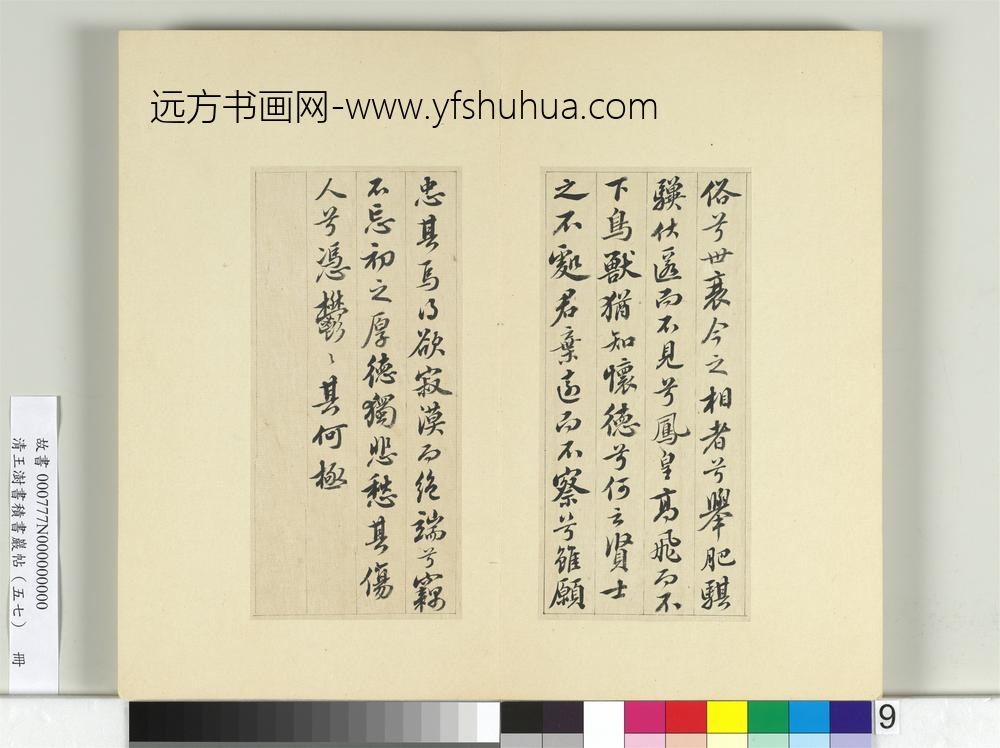 远方书画网-www.yfshuhua.com
俗兮世衰今之相者兮舉肥騏
驥伏匿而不見兮鳳皇高飛而不
下鳥獸猶知懷德兮何云賢士
之不處君棄遠而不察兮雖願
忠其焉得欲寂漠而絕端兮竊
不忘初之厚德獨悲愁其傷
人兮馮鬱〻其何極
故書 000777N000000000
清王澍書積書巖帖（五七） 冊
9